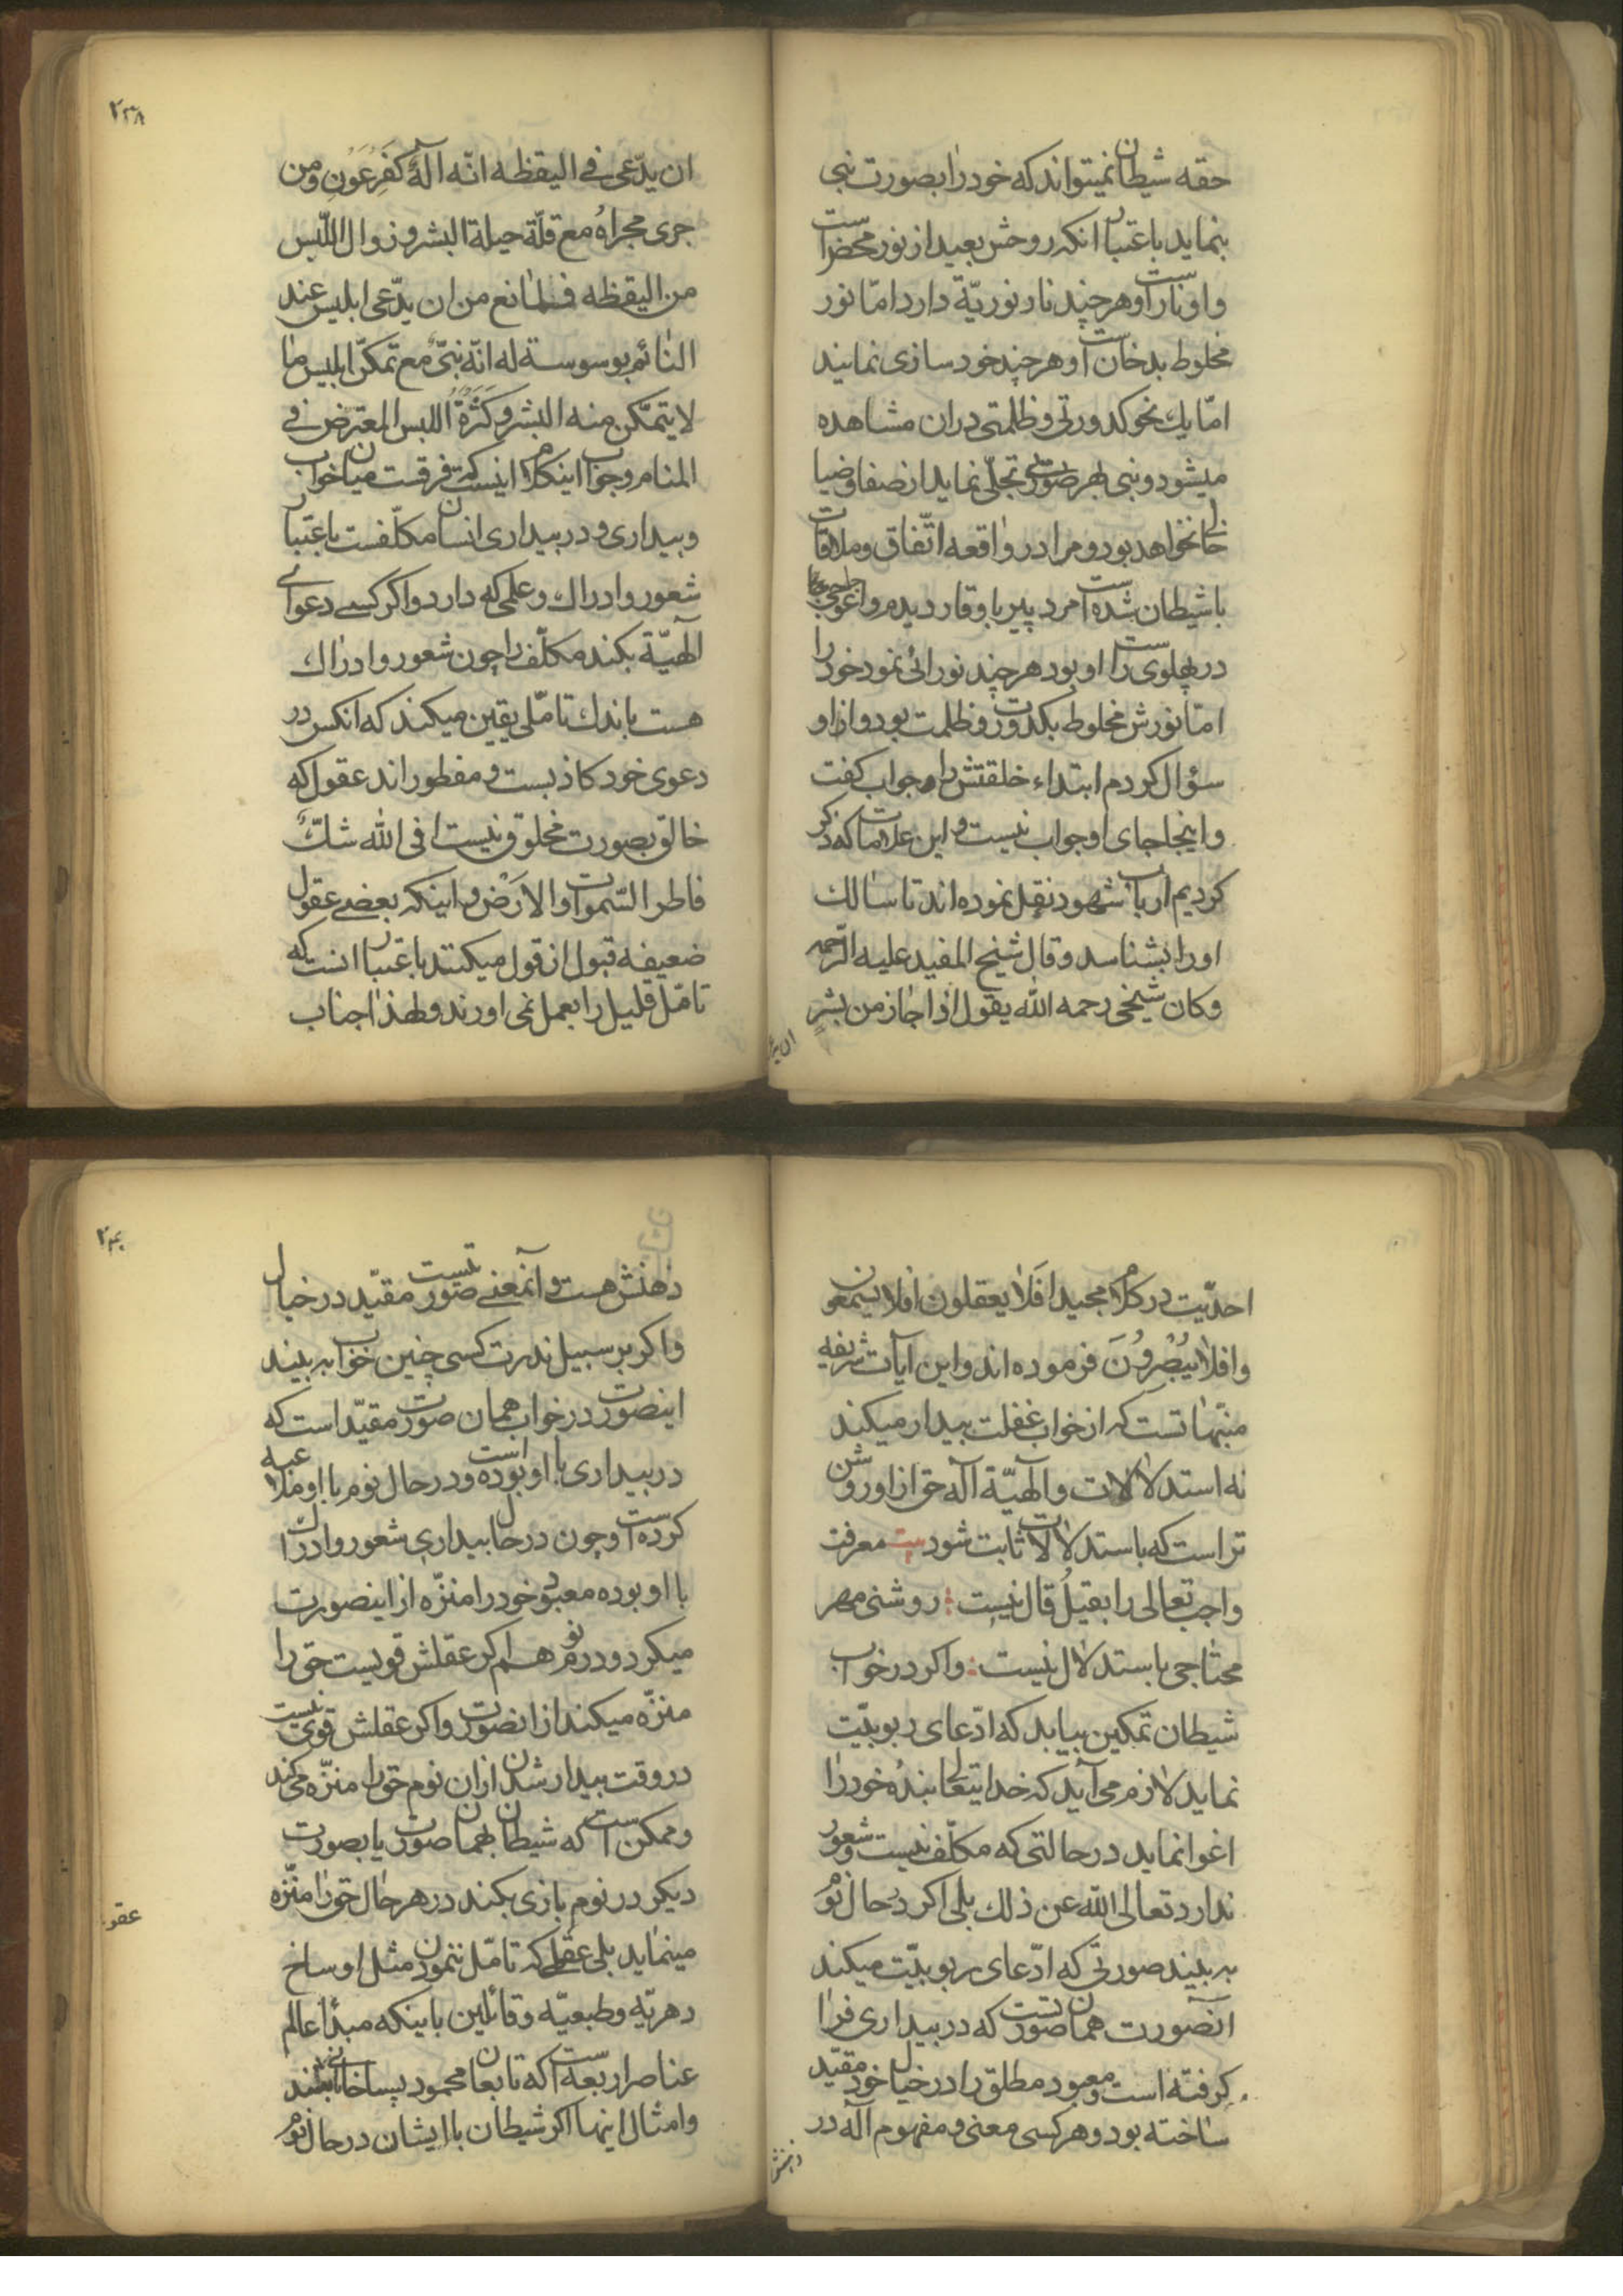 حقه شیطان نمیتواند که خود را بصورت نبی
بنماید باعتبار انکه روحش بعید از نور محض است
و او نار است و هر چند نار نوریّة دارد امّا نور
مخلوط بدخان است و هر چند خود سازی نمایند
امّا یك نحو کدورتی و ظلمتی در ان مشاهده
میشود و نبی بهر صورتی تجلّی نماید از صفا و ضیا
خالی نخواهد بود و مرا در واقعه اتّفاق و ملاقات
با شیطان شده است مرد پیر با وقار دیدم و
در پهلوی راست او بود هر چند نورانی نمود خود را
امّا نورش مخلوط بکدورت و ظلمت بود و از او
سؤال کردم ابتداء خلقتش را و جواب گفت
و اینجا جای او جواب نیست و این علامات که ذکر
کردیم ارباب شهود نقل نموده اند تا سالك
او را بشناسد و قال شیخ المفید علیه الرّحمه
و کان شیخی رحمه الله یقول اذا جاز من بشر
ان یدّ
۲۳۸
ان یدّعی فی الیقظه انّه الٓهٌ کَفِرْعَوْنِ و من
جری مجراهُ مع قلّة حیلة البشر و زوال اللّبس
من الیقظه فما المانع من ان یدّعی ابلیس عند
النائم بوسوسة له انّه نبیّ مع تمکّن ابلیس ما
لا یتمکّن منه البشر و کَثْرَةُ اللبس المعترض فی
المنام و جواب اینکلام اینست که فرقست میان خواب
و بیداری و در بیداری انسان مکلّفست باعتبار
شعور و ادراك و علمی که دارد و اکر کسی دعوای
الٓهیّة بکند مکلّف را چون شعور و ادراك
هست باندك تامّلی یقین میکند که انکس در
دعوی خود کاذبست و مفطوراند عقول که
خالق بصورت مخلوق نیست افی الله شكّ
فاطر السّموات والاَرْض و اینکه بعضی عقول
ضعیفه قبول از قول میکنند باعتبار انست که
تامّل قلیل را بعمل نمی اورند و لهذا جناب
احدّیت در کلام مجید افَلا یعقلون افلا یسمعون
و افلا یُبْصِرُونَ فرموده اند و این ایات شریفه
منبّهاتست که از خواب غفلت بیدار میکند
نه استدلالات و الٓهیّة الٓه حق از او روشن
تر است که باستدلالات ثابت شود بیت معرفت
واجب تعالی را بقیلُ قال نیست : روشنی مهر
محتاجی باستدلال نیست : و اکر در خواب
شیطان تمکین بیابد که ادّعای ربوبیّت
نماید لازم می آید که خدایتعالی بندهٔ خود را
اغوا نماید در حالتی که مکلّف نیست و شعور
ندارد تعالی الله عن ذلك بلی اکر در حال نوم
به بیند صورتی که ادّعای ربوبیّت میکند
آنصورت همان صورتست که در بیداری فرا
کرفته است و معبود مطلق را در خیال خود مقیّد
ساخته بود و هر کسی معنی و مفهوم الٓه در
ذهنش
۲۴۰
ذهنش هست و آنمعنی صورتیست مقیّد در خیال
و اکر بر سبیل ندرت کسی چنین خواب به بیند
اینصورت در خواب همان صورت مقیّد است که
در بیداری با او بوده است و در حال نوم با او ملاعبه
کرده است و چون در حال بیداری شعور و ادراك
با او بوده معبود خود را منزّه از اینصورت
میکرد و در نوم هم اکر عقلش قویست حق را
منزّه میکند از انصورت و اکر عقلش قوی نیست
در وقت بیدار شدن از ان نوم حق را منزّه میکند
و ممکن است که شیطان بهمان صورت یا بصورت
دیکر در نوم بازی بکند در هر حال حق را منزّه
مینماید بلی عقلی که تامّل ننموده مثل اوساخ
دهریّه و طبعیّه و قائلین باینکه مبدأ عالم
عناصر اربعه است که تابعان محمود پساخانی باشند
و امثال اینها اکر شیطان با ایشان در حال نوم